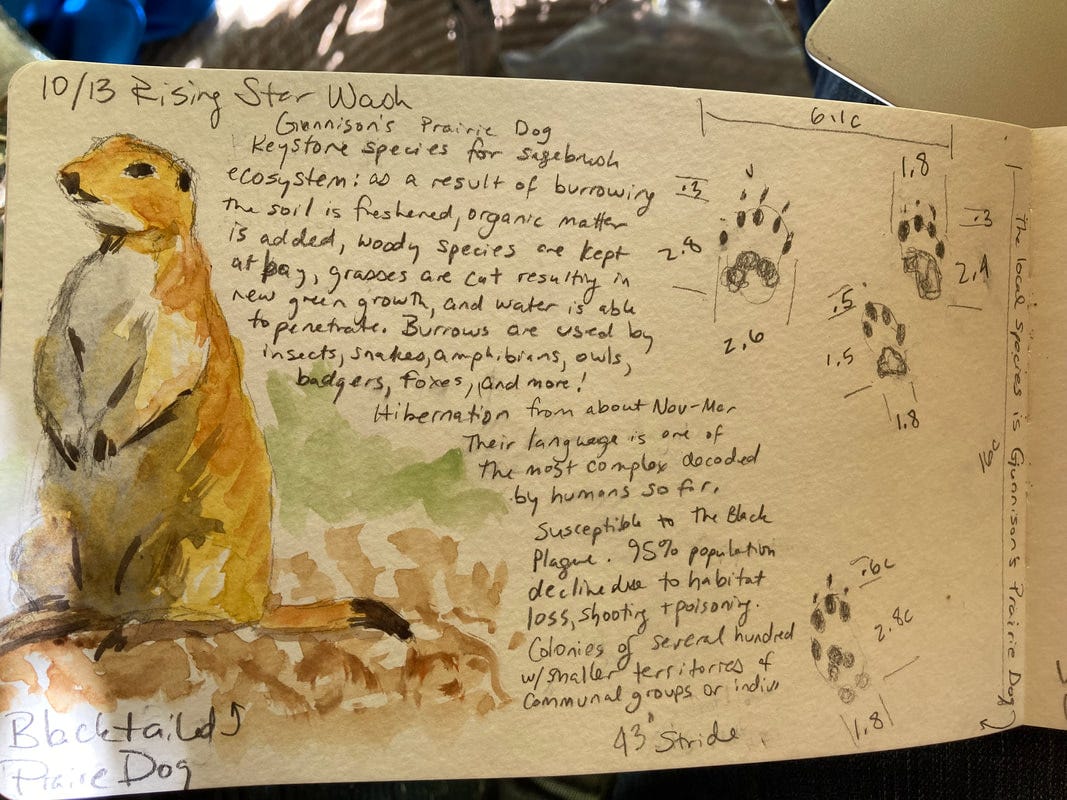 10/13 Rising Star Wash
Gunnison's Prairie Dog
Keystone species for sagebrush
ecosystem: as a result of burrowing
the soil is freshened, organic matter
is added, woody species are kept
at bay, grasses are cut resulting in
new green growth, and water is able
to penetrate. Burrows are used by
insects, snakes, amphibians, owls,
badgers, foxes, and more!
Hibernation from about Nov-Mar
Their language is one of
the most complex decoded
by humans so far.
Susceptible to The Black
Plague. 95% population
decline due to habitat
loss, shooting + poisoning.
Colonies of several hundred
w/ smaller territories of
communal groups or indiv
43" Stride
Blacktailed
Prairie Dog
6.1c
.3
2.8
2.6
1.8
.3
2.4
.5
1.5
1.8
.6c
2.8c
1.8
The local species is Gunnison's Prairie Dog